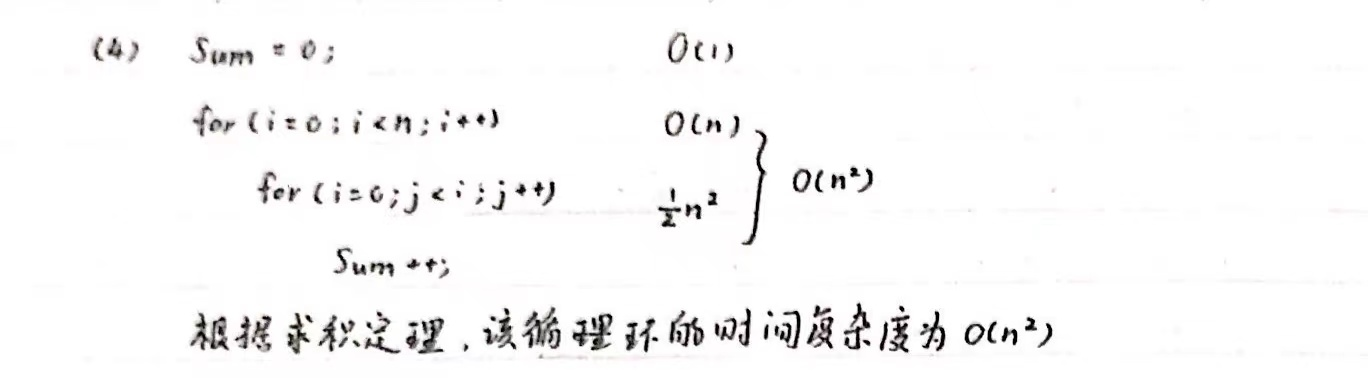 (4) Sum = 0; O(1)
for (i=0; i<n; i++) O(n)
for (i=0; j<i; j++) ½n² } O(n²)
Sum ++;
根据求积定理,该循理环的时间复杂度为 O(n²)